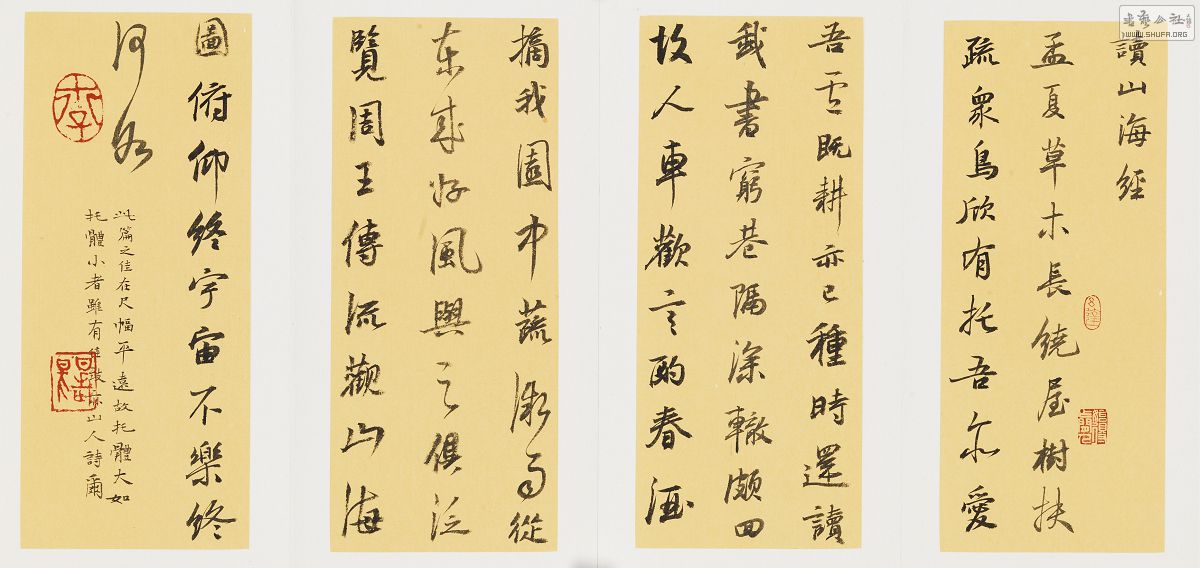 讀山海經
孟夏草木長繞屋樹扶
疏眾鳥欣有托吾亦愛
吾廬既耕亦已種時還讀
我書窮巷隔深轍頗回
故人車歡言酌春酒
摘我園中蔬微雨從
東來好風與之俱泛
覽周王傳流觀山海
圖俯仰終宇宙不樂終
何如
此篇之佳在尺幅平遠故托體大如
托體小者雖有佳致亦山人詩爾
李
書藝公社
WWW.SHUFA.ORG